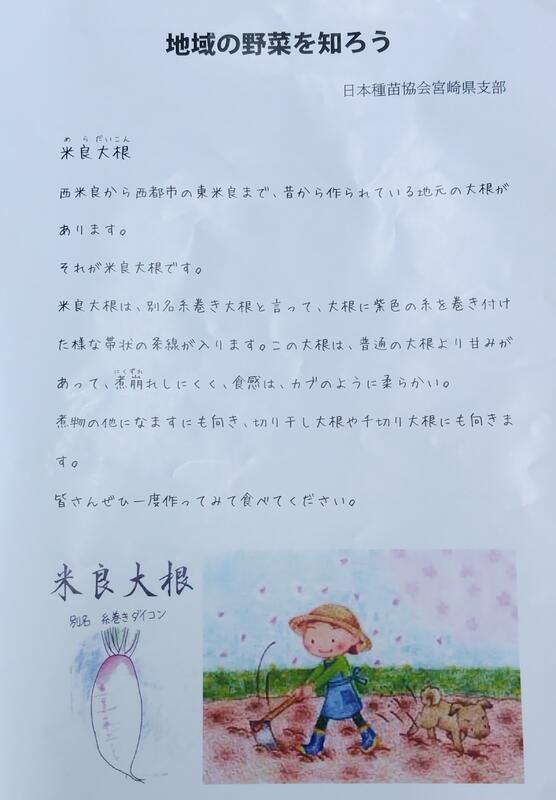 地域の野菜を知ろう
日本種苗協会宮崎県支部
めらだいこん
米良大根
西米良から西都市の東米良まで、昔から作られている地元の大根が
あります。
それが米良大根です。
米良大根は、別名糸巻き大根と言って、大根に紫色の糸を巻き付け
た様な帯状の条線が入ります。この大根は、普通の大根より甘みが
にくずれ
あって、煮崩れしにくく、食感は、カブのように柔らかい。
煮物の他になますにも向き、切り干し大根や千切り大根にも向きま
す。
皆さんぜひ一度作ってみて食べてください。
米良大根
別名 糸巻きダイコン